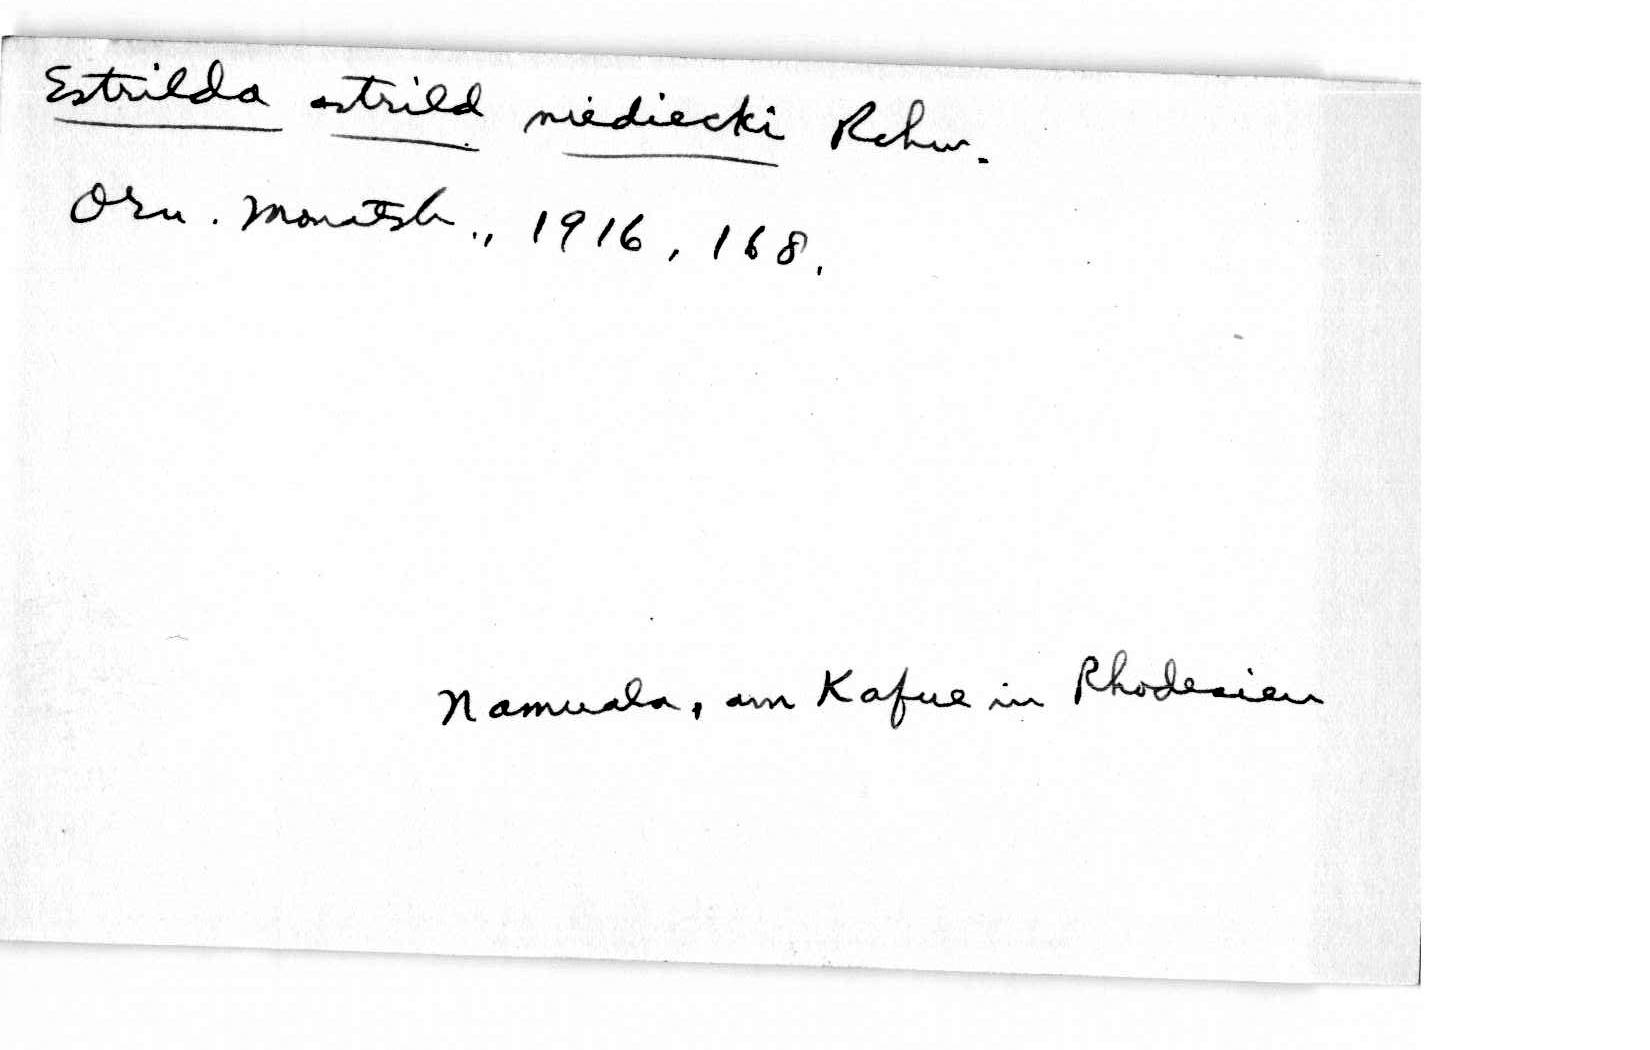 Estrilda astrild niediecki Rchw.
Orn. Monatsb., 1916, 168.
Namwala, am Kafue in Rhodesien